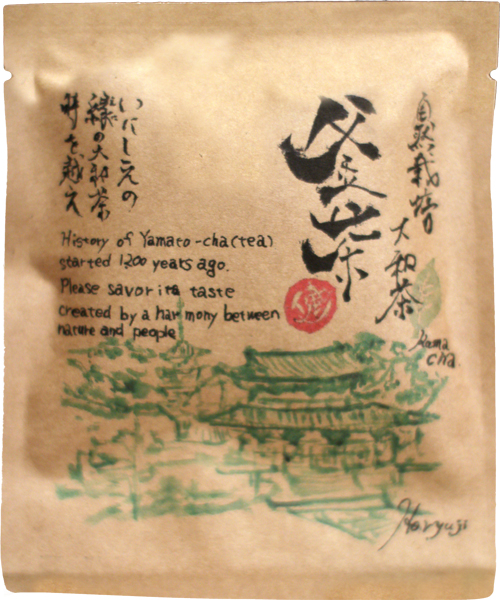 自然栽培
大和茶
釜茶
いにしえの
縁の大和茶
時を越え
History of Yamato-cha(tea)
started 1200 years ago.
Please savor its taste
created by a harmony between
nature and people
Kama
cha.